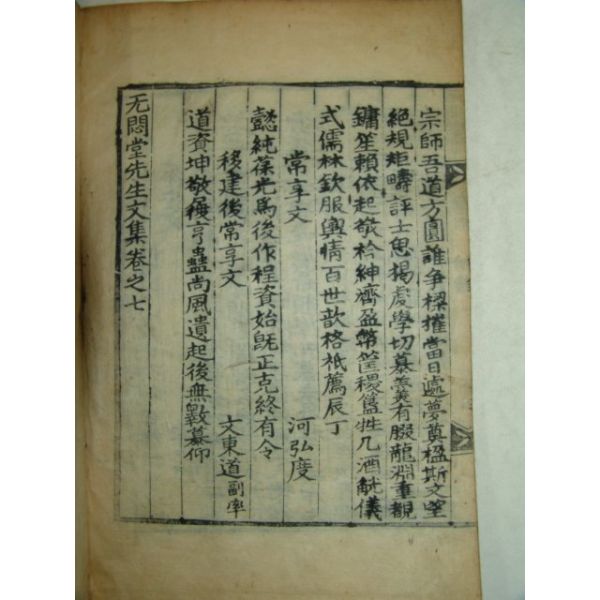 宗師吾道方圓誰爭樑摧當日遽夢奠楹斯文墜
絕規矩疇評士思揚處學切慕羹有腏龍淵重觀
鏞笙賴依起敬衿紳濟盈幣筐稷簋牲几酒觥儀
式儒林欽服輿情百世歆格祇薦辰丁
常享文 河弘度
懿純葆光馬後作程資始旣正克終有令
移建後常享文 文東道副率
道資坤敬履亨蠱尚風遺起後無斁慕仰
无悶堂先生文集卷之七